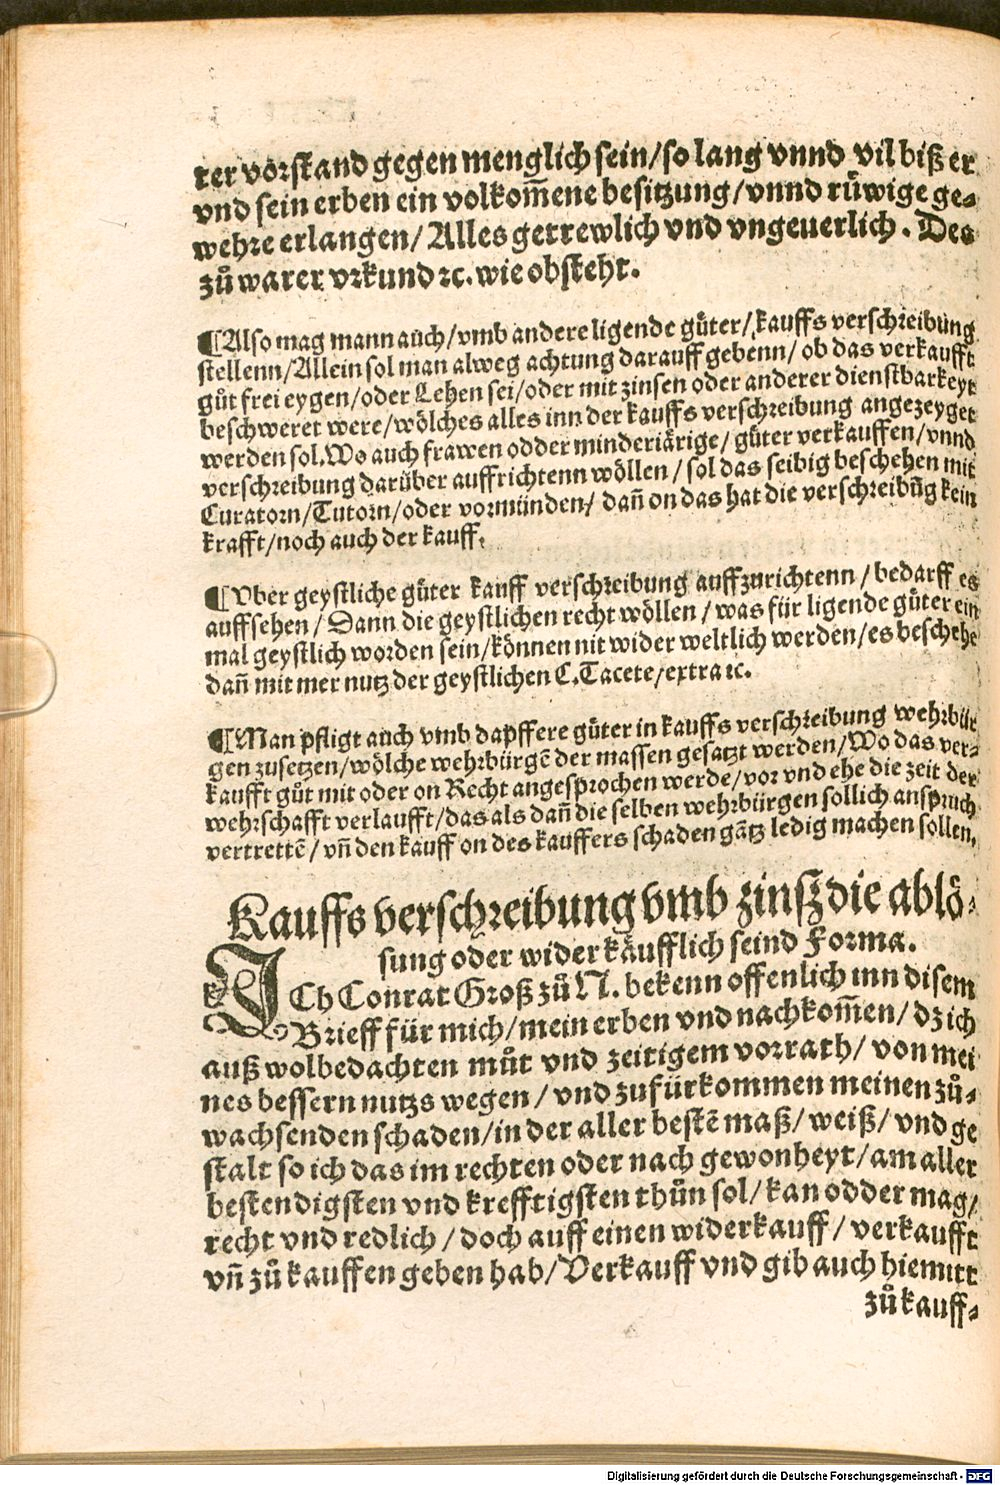 ter vorstand gegen menglich sein/so lang vnnd vil biß er
vnd sein erben ein volkom̃ene besitzung/vnnd rüwige ge⸗
wehre erlangen/ Alles getrewlich vnd vngeuerlich. Des
zů warer vrkund ꝛc. wie obsteht.
¶Also mag mann auch/vmb andere ligende gůter/kauffs verschreibung
stellenn/Allein sol man alweg achtung darauff gebenn/ ob das verkaufft
gůt frei eygen/oder Lehen sei/oder mit zinsen oder anderer dienstbarkeyt
beschweret were/wölches alles inn der kauffs verschreibung angezeyget
werden sol. Wo auch frawen odder minderiärige/ güter verkauffen/vnnd
verschreibung darüber auffrichtenn wöllen/sol das selbig beschehen mit
Curatorn/Tutorn/oder vormünden/ dañ on das hat die verschreibũg kein
krafft/noch auch der kauff.
¶Vber geystliche güter kauff verschreibung auffzurichtenn/bedarff es
auffsehen/Dann die geystlichen recht wöllen/was für ligende gůter ein
mal geystlich worden sein/können nit wider weltlich werden/es beschehe
dañ mit mer nutz der geystlichen C. Tacete/extra ꝛc.
¶Man pfligt auch vmb dapffere gůter in kauffs verschreibung wehrbür
gen zusetzen/wölche wehrbürgẽ der massen gesatzt werden/Wo das ver⸗
kaufft gůt mit oder on Recht angesprochen werde/vor vnd ehe die zeit der
wehrschafft verlaufft/das als dañ die selben wehrbürgen sollich anspruch
vertrettẽ/vñ den kauff on des kauffers schaden gãtz ledig machen sollen.
Kauffs verschreibung vmb zinßz die ablö⸗
sung oder widerkäufflich seind Forma.
ICh Conrat Groß zů N. bekenn offenlich inn disem
Brieff für mich/mein erben vnd nachkom̃en/dz ich
auß wolbedachten můt vnd zeitigem vorrath/ von mei
nes bessern nutzs wegen/vnd zufürkommen meinen zů⸗
wachsenden schaden/in der aller bestẽ maß/weiß/vnd ge
stalt so ich das im rechten oder nach gewonheyt/am aller
bestendigsten vnd krefftigsten thůn sol/kan odder mag/
recht vnd redlich/doch auff einen widerkauff/verkaufft
vñ zů kauffen geben hab/Verkauff vnd gib auch hiemitt
zů kauff⸗
Digitalisierung gefördert durch die Deutsche Forschungsgemeinschaft - DFG